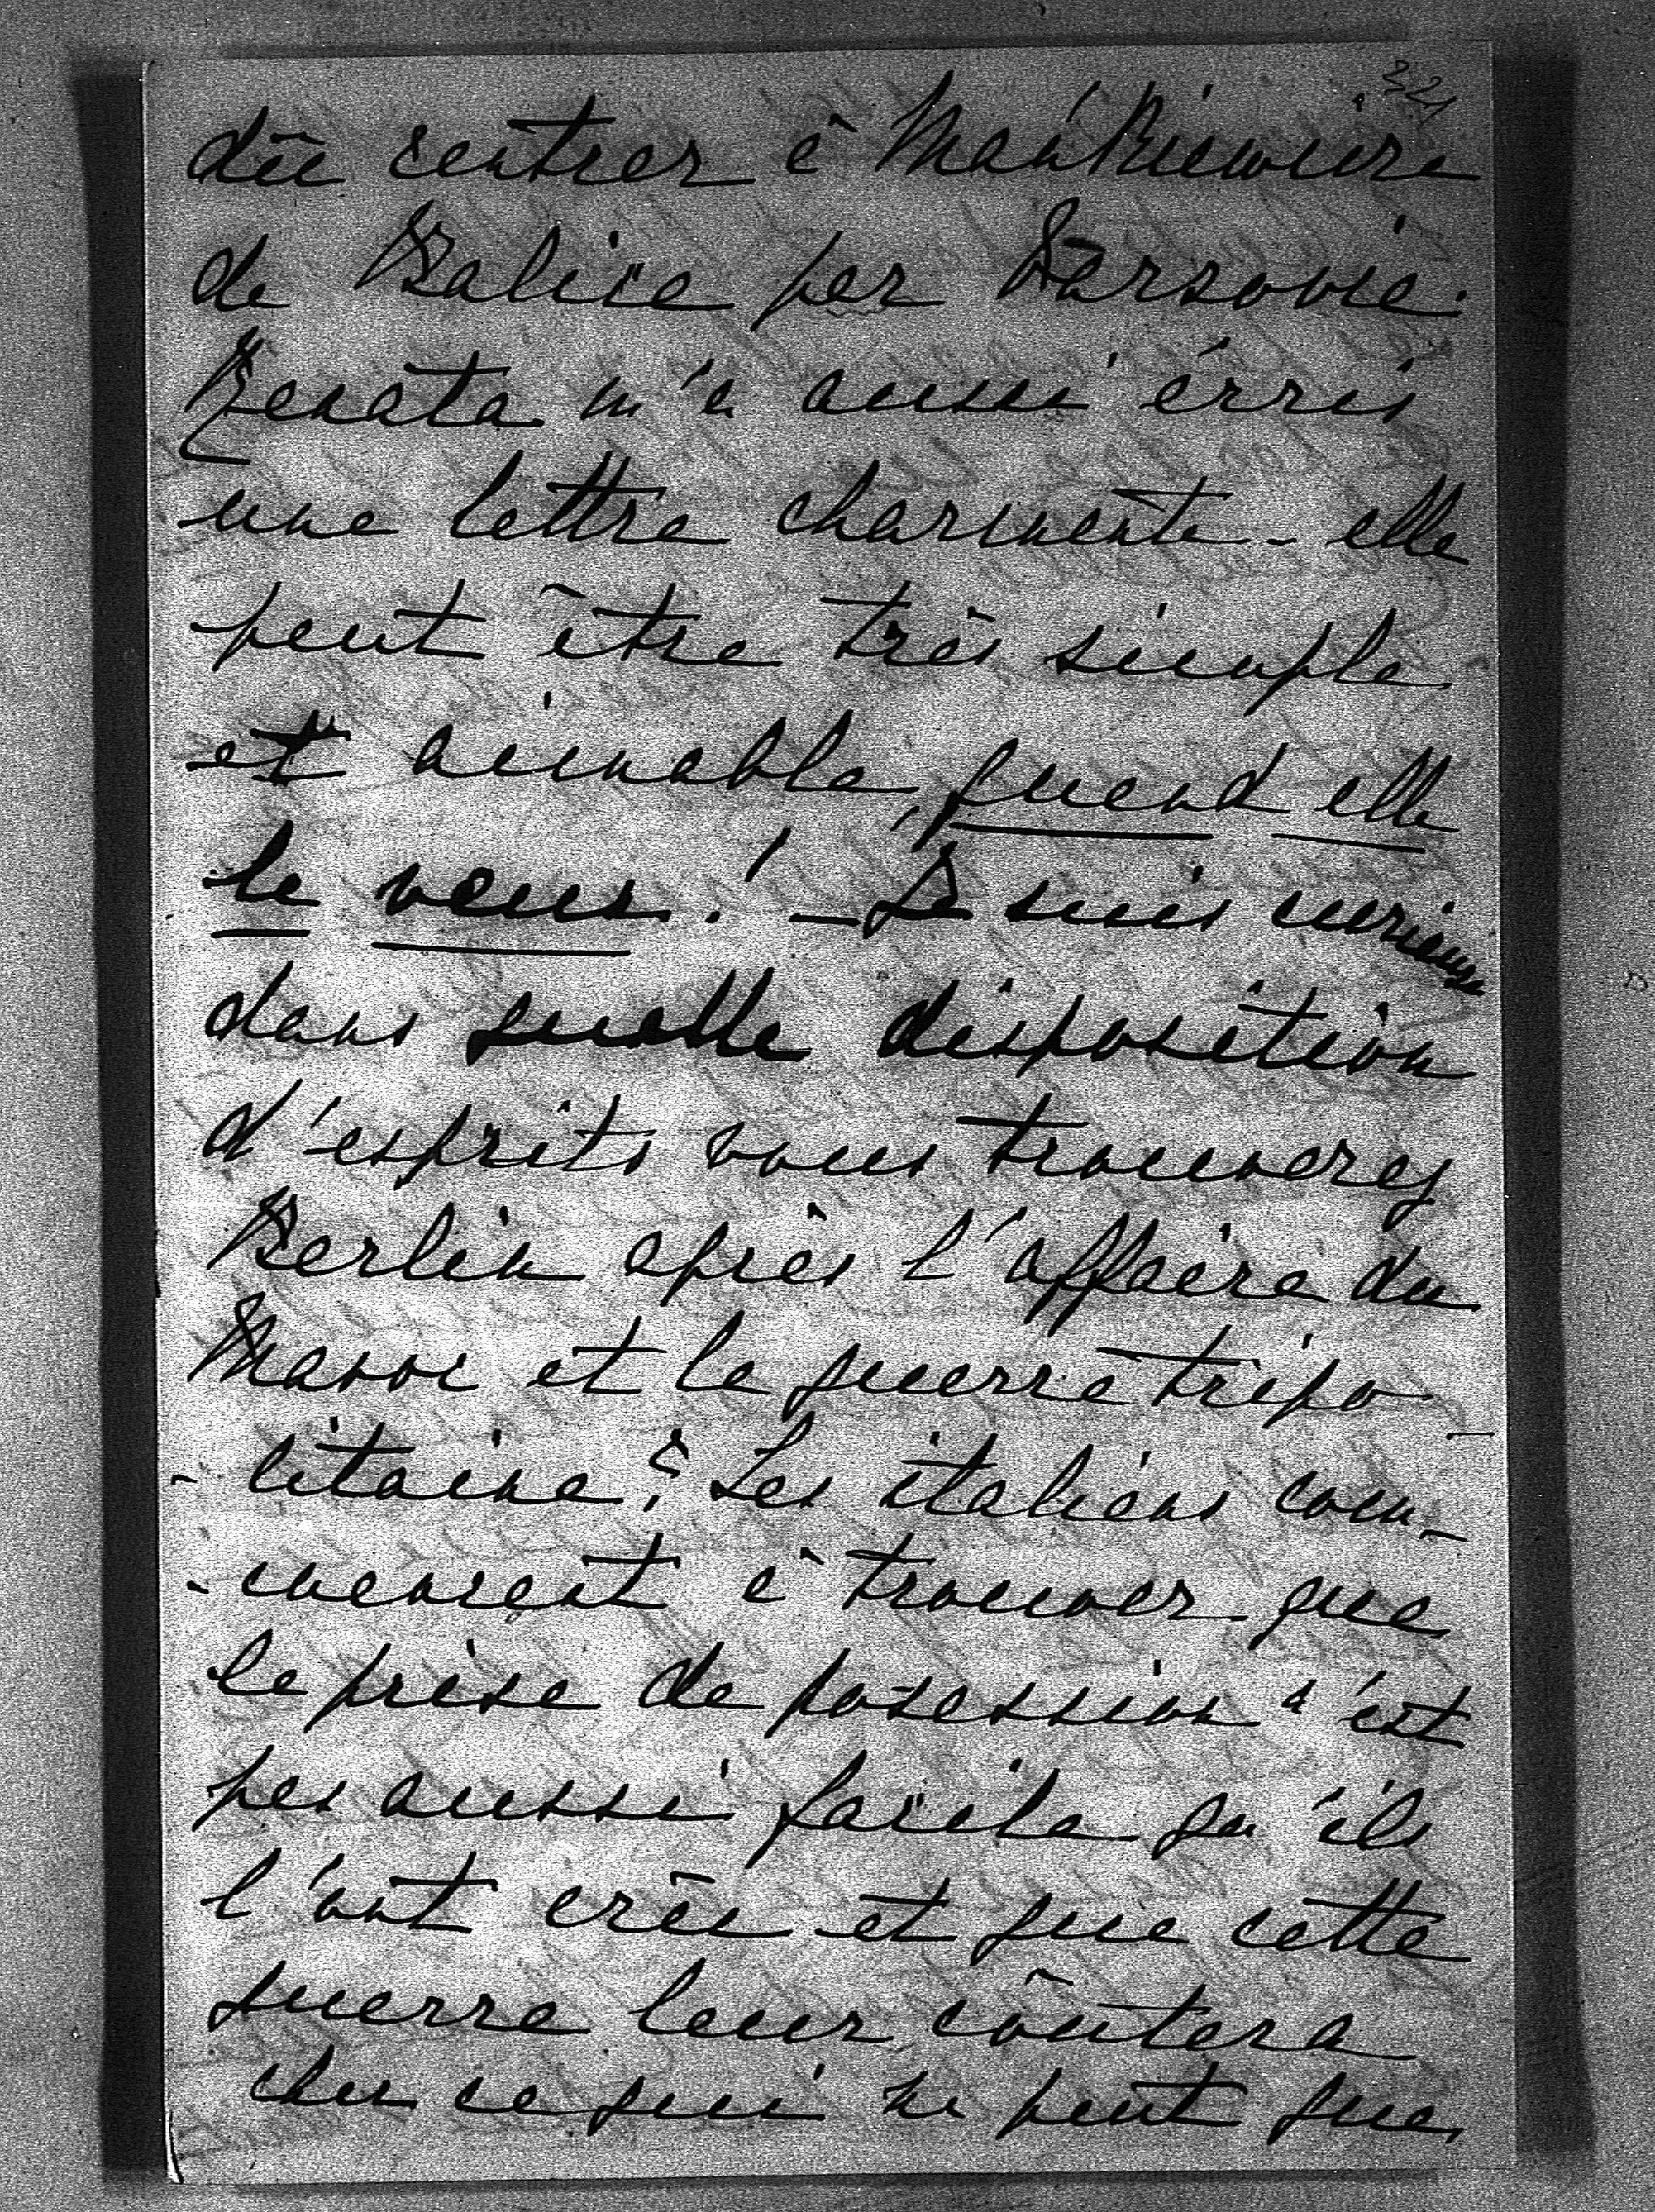 321
dû rentrer à Mańkiewicze
de Balice par Varsovie.
Renata m'a aussi écris
une lettre charmante - elle
peut être très simple
et aimable, quand elle
le veus! - Je suis curieuse
dans quelle disposition
d'esprits vous trouverez
Berlin après l'affaire du
Maroc et la guerre tripo-
-litaine? Les italiens com-
-mencent à trouver que
la prise de posession n'est
pas aussi facile qu'ils
l'ont crêu et que cette
guerre leur côutera
cher ce qui ne peut que